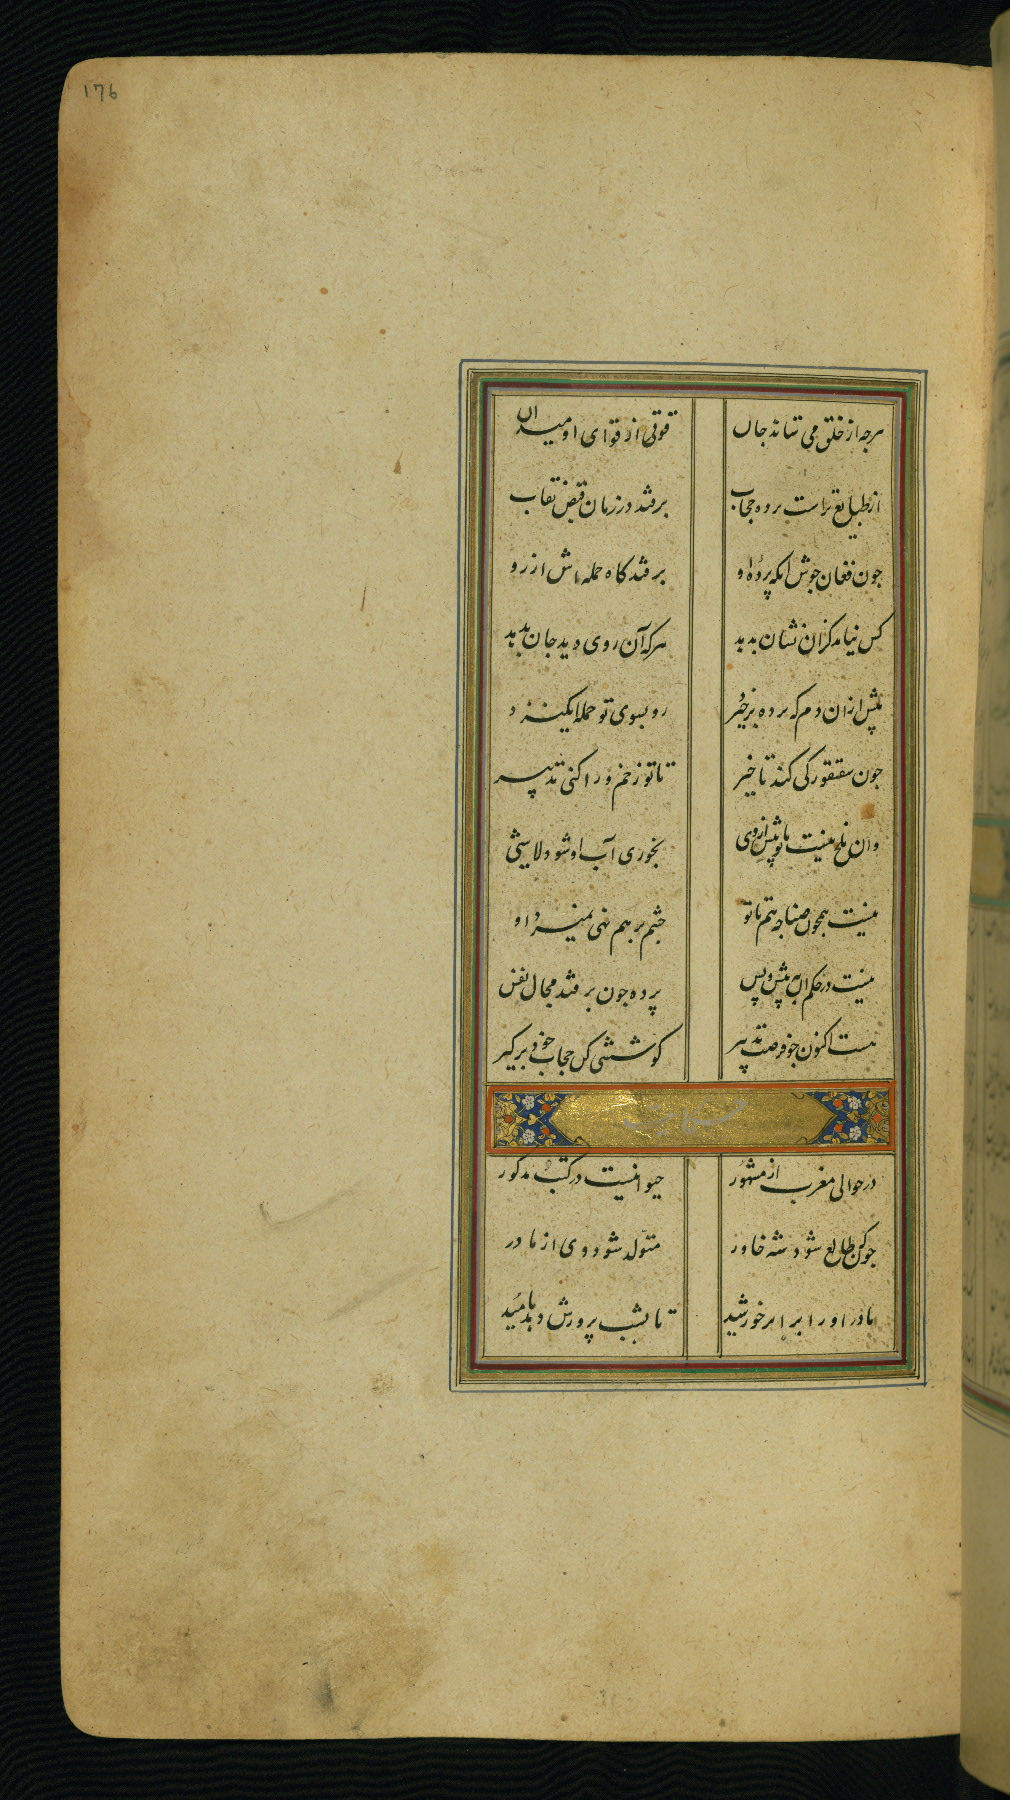 176
هرچه از خلق می ستاند جان قوتی از قوای او میدان
از طبایع تراست برده حجاب برفتد در زمان قبض نقاب
چون فغان جوش آنکه پرده او برفتد کاه حمله اش از رو
کس نیامد کزان نشان بدهد هرکه آن روی دید جان بدهد
پیش از آن دم که برده بر خیزد رو بسوی تو حمله انگیزد
چون سقنقور کی کند تاخیر تا تو زخم ورا کنی تدبیر
بخوری آب او شود لاشیئی
نیست همچون صناجه هم با تو چشم بر هم نهی نمیرد او
نیست در حکم آن نه پیش و پس پرده چون برفتد مجال نفس
هست اکنون چو فرصت تدبیر کوششی کن حجاب خود برگیر
حکایت
در حوالی مغرب از مشهور حیوانیست در کتب مذکور
چون کزین طالع شود شه خاور متولد شود وی از مادر
مادر او را برابر خورشید تا بشب پرورش دهد بامید